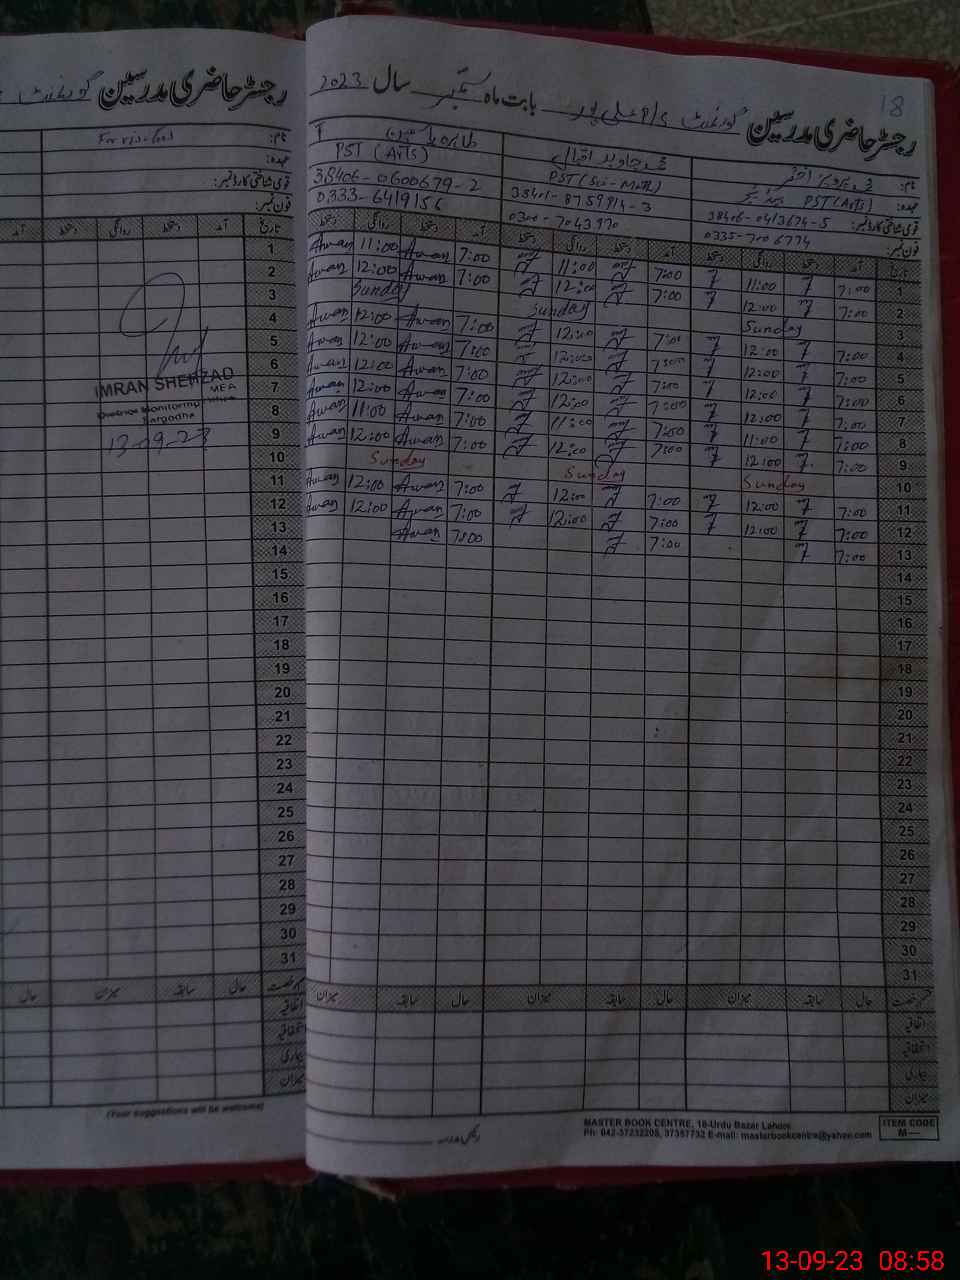 رجسٹر حاضری مدرسین گورنمنٹ
نام:
عہدہ:
قومی شناختی کارڈ نمبر:
فون نمبر:
تاریخ آمد دستخط روانگی دستخط آمد
1
2
3
4
5
6
7
8
9
10
11
12
13
14
15
16
17
18
19
20
21
22
23
24
25
26
27
28
29
30
31
IMRAN SHEHZAD
MEA
Sargodha
13-09-23
حال سابقہ میزان حال
اتفاقیہ
استحقاقیہ
بیماری
میزان
(Your suggestions will be welcome)
18
رجسٹر حاضری مدرسین گورنمنٹ P/S علی پور بابت ماہ ستمبر سال 2023
نام: محمد پرویز اختر محمد جاوید اقبال طاہرہ یاسمین
عہدہ: PST (Arts) PST (Sci-Math) PST (Arts)
قومی شناختی کارڈ نمبر: 38406-0413674-5 38401-8759814-3 38406-0600679-2
فون نمبر: 0335-7006774 0300-7043970 0333-6419156
تاریخ آمد دستخط روانگی دستخط آمد دستخط روانگی دستخط آمد دستخط روانگی دستخط
1 7:00 11:00 7:00 11:00 7:00 Awan 11:00 Awan
2 7:00 12:00 7:00 12:00 7:00 Awan 12:00 Awan
3 Sunday Sunday Sunday
4 7:00 12:00 7:00 12:00 7:00 Awan 12:00 Awan
5 7:00 12:00 7:00 12:00 7:00 Awan 12:00 Awan
6 7:00 12:00 7:00 12:00 7:00 Awan 12:00 Awan
7 7:00 12:00 7:00 12:00 7:00 Awan 12:00 Awan
8 7:00 11:00 7:00 11:00 7:00 Awan 11:00 Awan
9 7:00 12:00 7:00 12:00 7:00 Awan 12:00 Awan
10 Sunday Sunday Sunday
11 7:00 12:00 7:00 12:00 7:00 Awan 12:00 Awan
12 7:00 12:00 7:00 12:00 7:00 Awan 12:00 Awan
13 7:00 7:00 7:00 Awan
14
15
16
17
18
19
20
21
22
23
24
25
26
27
28
29
30
31
حال سابقہ میزان حال سابقہ میزان حال سابقہ میزان
اتفاقیہ
استحقاقیہ
بیماری
میزان
رئیس مدرسہ
MASTER BOOK CENTRE, 18-Urdu Bazar Lahore
Ph: 042-37232208, 37357732 E-mail: masterbookcentre@yahoo.com
ITEM CODE
M—
13-09-23 08:58